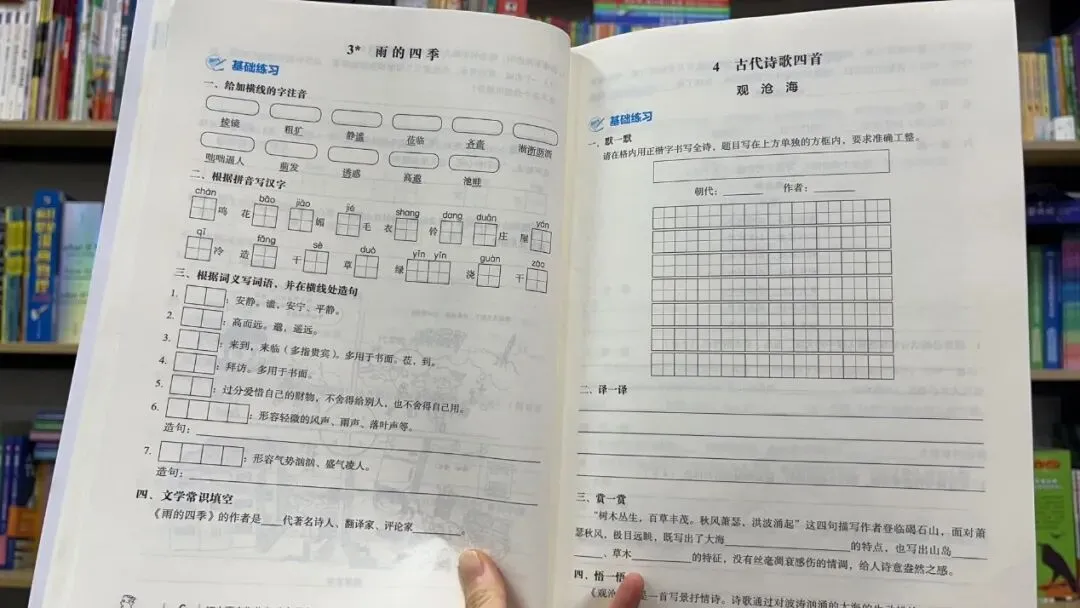 3* 雨的四季
基础练习
一、给加横线的字注音
披镜 粗犷 静谧 莅临 吝啬 淅淅沥沥
咄咄逼人 萌发 透惑 高邈 池畦
二、根据拼音写汉字
chán bāo jiāo jié shang dang duān yán
鸣 花 媚 毛 衣 铃 庄 屋
qī fāng sè duò yīn yīn guàn zào
冷 造 干 草 绿 浇 干
三、根据词义写词语，并在横线处造句
1. ：安静。谧，安宁、平静。
2. ：高而远。邈，遥远。
3. ：来到，来临（多指贵宾）。多用于书面。莅，到。
4. ：拜访。多用于书面。
5. ：过分爱惜自己的财物，不舍得给别人，也不舍得自己用。
6. ：形容轻微的风声、雨声、落叶声等。
造句：
7. ：形容气势汹汹、盛气凌人。
造句：
四、文学常识填空
《雨的四季》的作者是____代著名诗人、翻译家、评论家
4 古代诗歌四首
观沧海
基础练习
一、默一默
请在格内用正楷字书写全诗，题目写在上方单独的方框内，要求准确工整。
朝代：________ 作者：________
二、译一译
三、赏一赏
“树木丛生，百草丰茂。秋风萧瑟、洪波涌起”这四句描写作者登临碣石山，面对萧
瑟秋风，极目远眺，既写出了大海________的特点，也写出山岛____
____、草木________的特征，没有丝毫凋衰感伤的情调，给人诗意盎然之感。
四、悟一悟
《观沧 是一首写景抒情诗。诗歌通过对波涛汹涌的大海的